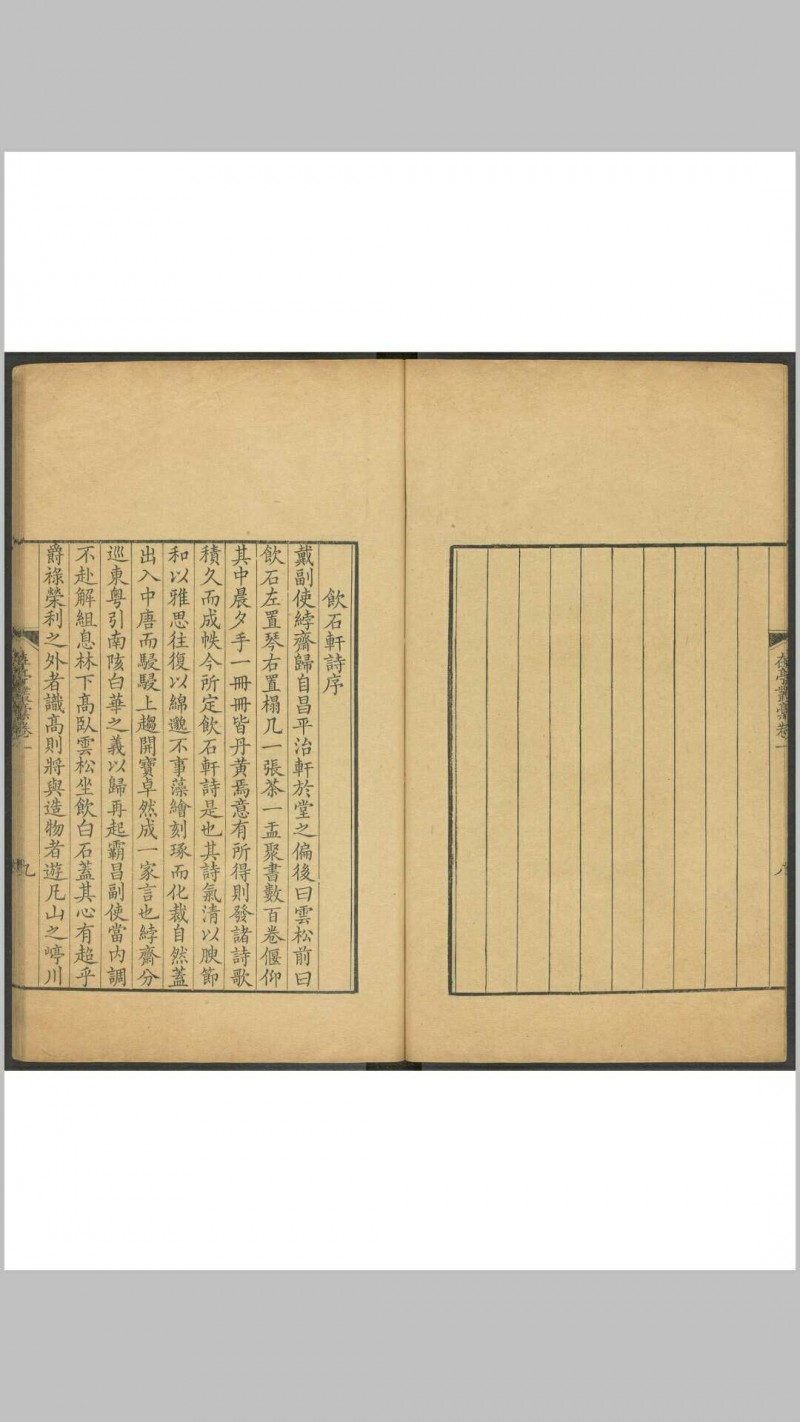 飲石軒詩序
戴副使綍齋歸自昌平治軒於堂之偏後曰雲松前曰
飲石左置琴右置榻几一張茶一盂聚書數百卷偃仰
其中晨夕手一冊冊皆丹黃焉意有所得則發諸詩歌
積久而成帙今所定飲石軒詩是也其詩氣清以腴節
和以雅思往復以綿邈不事藻繪刻琢而化裁自然蓋
出入中唐而駸駸上趨開寶卓然成一家言也綍齋分
巡東粵引南陔白華之義以歸再起霸昌副使當內調
不赴解組息林下高臥雲松坐飲白石蓋其心有超乎
爵祿榮利之外者識高則將與造物者遊凡山之崿川
叢藁卷一
九
叢藁卷一
八